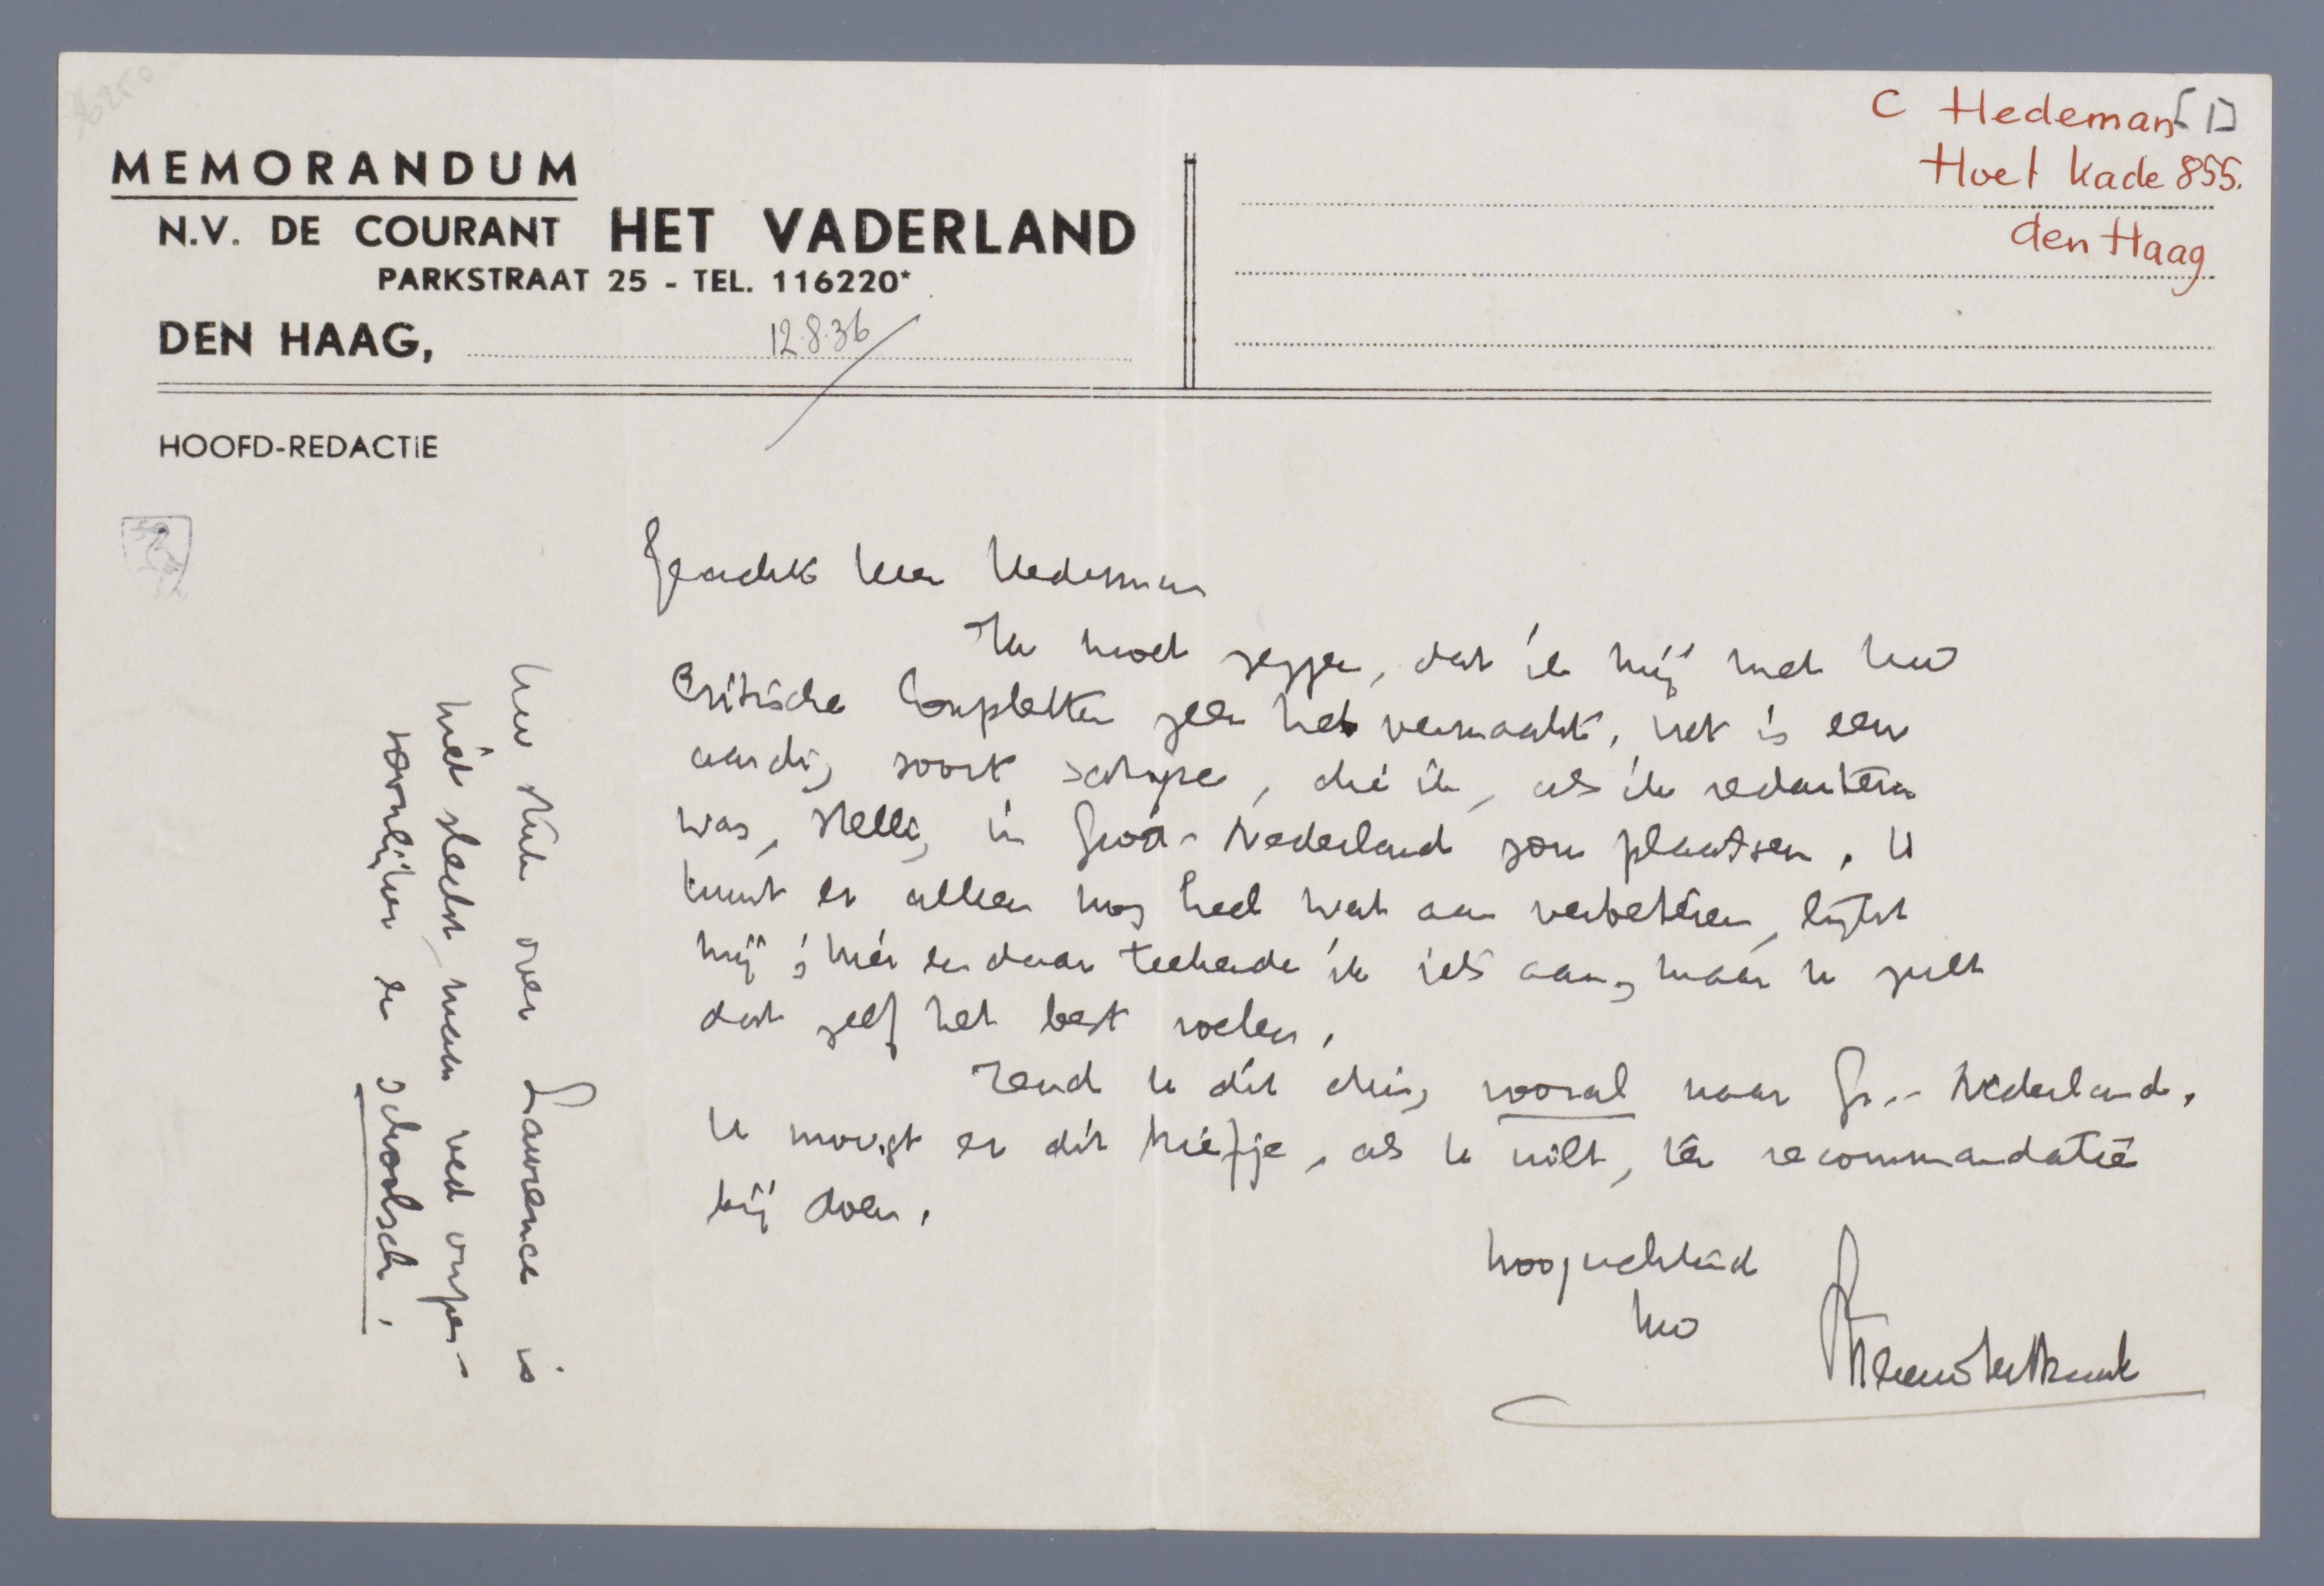 MEMORANDUM
N.V. DE COURANT HET VADERLAND
PARKSTRAAT 25 - TEL. 116220*
DEN HAAG, 12.8.36
C Hedeman [1]
Hoef kade 855.
den Haag
HOOFD-REDACTIE
Geachte heer Hedeman
Ik moet zeggen, dat ik mij met uw
Critische Coupletten zeer heb vermaakt, het is een
aardig soort satyre, die ik, als ik redacteur
was, stellig in Groot-Nederland zou plaatsen. U
kunt er alleen nog heel wat aan verbeteren, lijkt
mij; hier en daar teekende ik iets aan, maar u zult
dat zelf het best voelen.
Zend u dit ding vooral naar Gr.-Nederland.
U moogt er dit briefje, als u wilt, ter recommandatie
bij doen.
hoogachtend
Uw
Menno ter Braak
Uw stuk over Lawrence is
niet slecht, maar veel onper-
soonlijker en schoolsch.